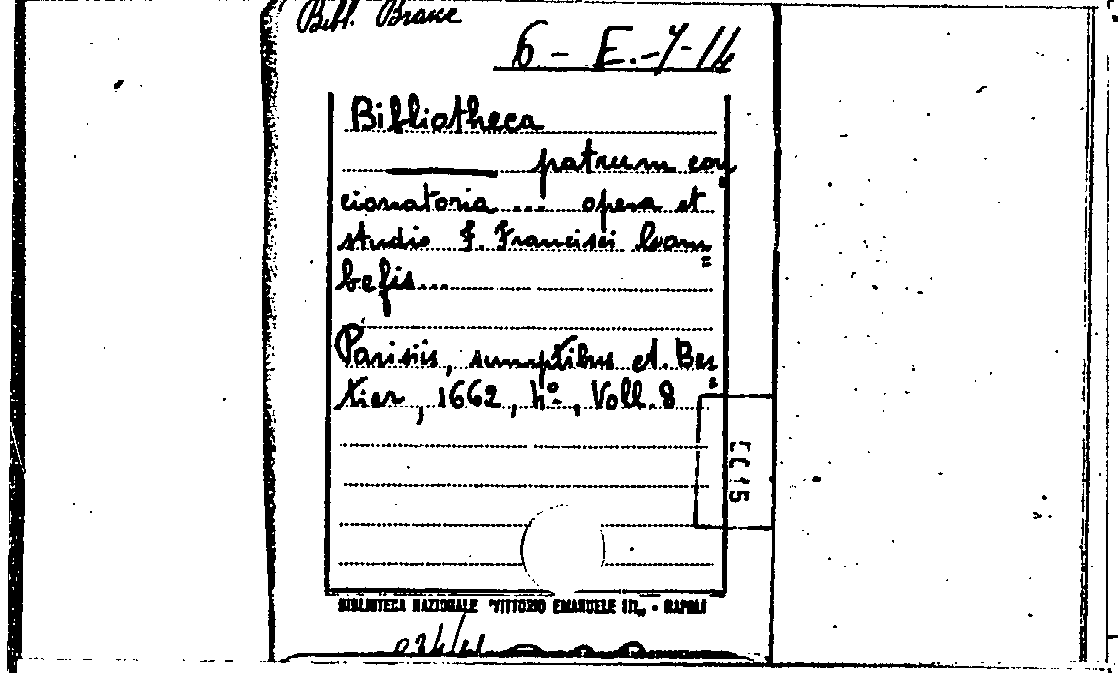 Bibl. Branc
6 - E. - 7 - 14
Bibliotheca
patrum con
cionatoria ... opera et
studio F. Francisci Com
=
befis...
Parisiis, sumptibus A. Ber
=
tier, 1662, 4º, Voll. 8
BIBLIOTECA NAZIONALE "VITTORIO EMANUELE III„ - NAPOLI